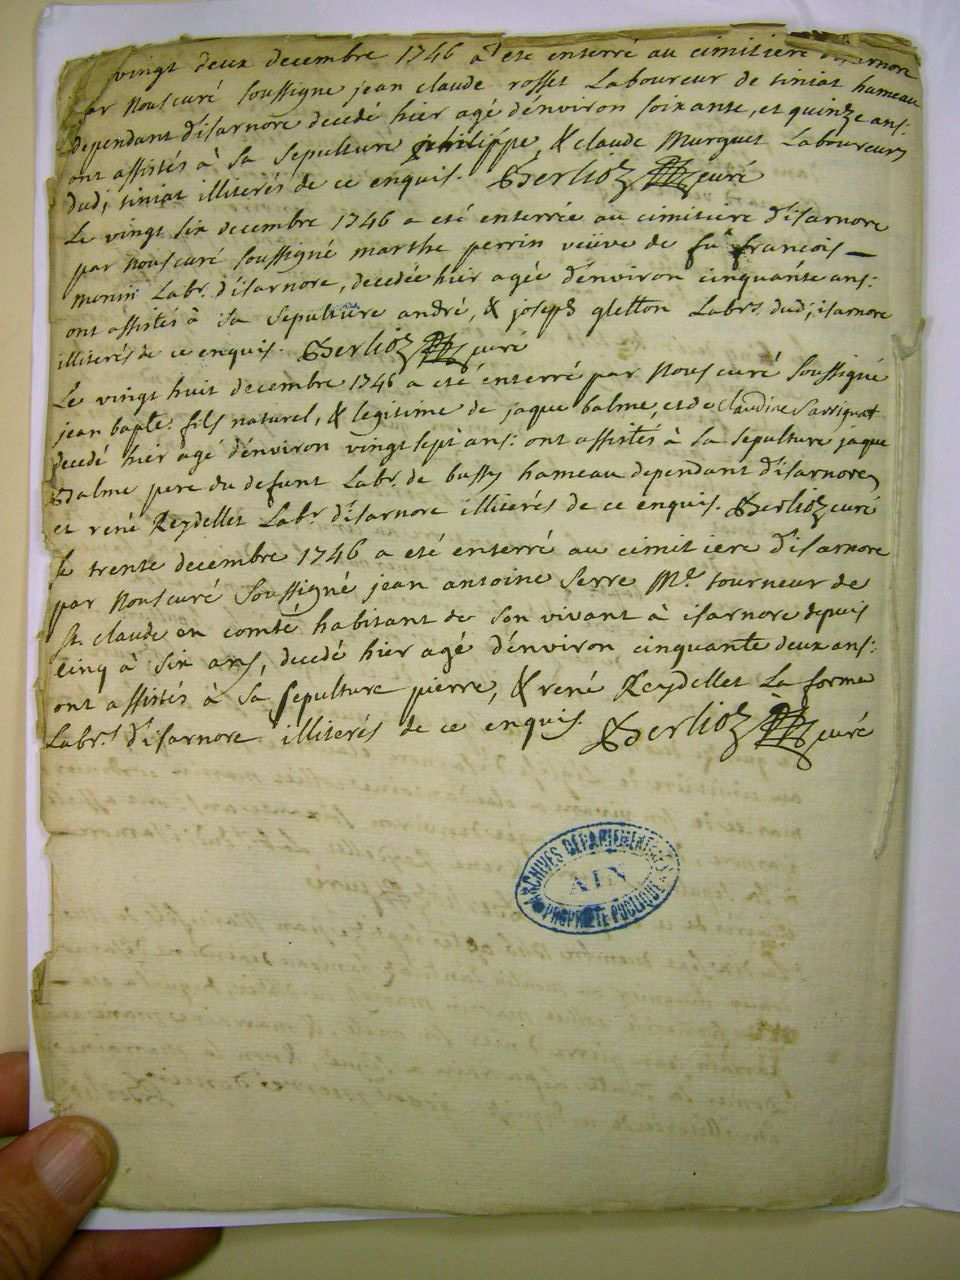 vingt deux decembre 1746 a eté enterré au cimitiere d'isarnore
par Nouscuré soussigné jean claude rosset Laboureur de siniat hameau
dependant d'isarnore decedé hier agé d'environ soixante, et quinze ans:
ont assistés à sa sepulture philippe, & claude Murguet Laboureurs
dud; siniat illiterés de ce enquis. Berlioz curé
Le vingt six decembre 1746 a eté enterrée au cimitiere d'isarnore
par Nouscuré soussigné marthe perrin veüve de fû francois
monin Labr. d'isarnore, decedée hier agée d'environ cinquante ans:
ont assistés à sa sepulture andré, & joseph gletton Labrs. dud; isarnore
illiterés de ce enquis. Berlioz curé
Le vingt huit decembre 1746 a eté enterré par Nouscuré soussigné
jean bapte. fils naturel, & legitime de jaque balme, et de Claudine Savignat
decedé hier agé d'environ vingt sept ans: ont assistés à sa sepulture jaque
Balme pere du defunt Labr. de bussy hameau dependant d'isarnore
et rené Reydellet Labr. d'isarnore illiterés de ce enquis. Berlioz curé
le trente decembre 1746 a eté enterré au cimitiere d'isarnore
par Nouscuré soussigné jean antoine Serre Me. tourneur de
St. claude en comté habitant de son vivant à isarnore depuis
cinq à six ans, decedé hier agé d'environ cinquante deux ans:
ont assistés à sa sepulture pierre, & rené Reydellet La forme
Labrs. d'isarnore illiterés de ce enquis. Berlioz curé
ARCHIVES DEPARTEMENTALES
AIN
PROPRIETE PUBLIQUE